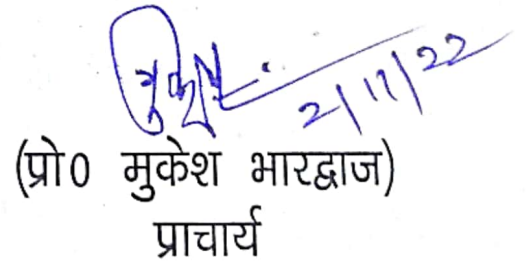 मुकेश
2/11/22
(प्रो0 मुकेश भारद्वाज)
प्राचार्य